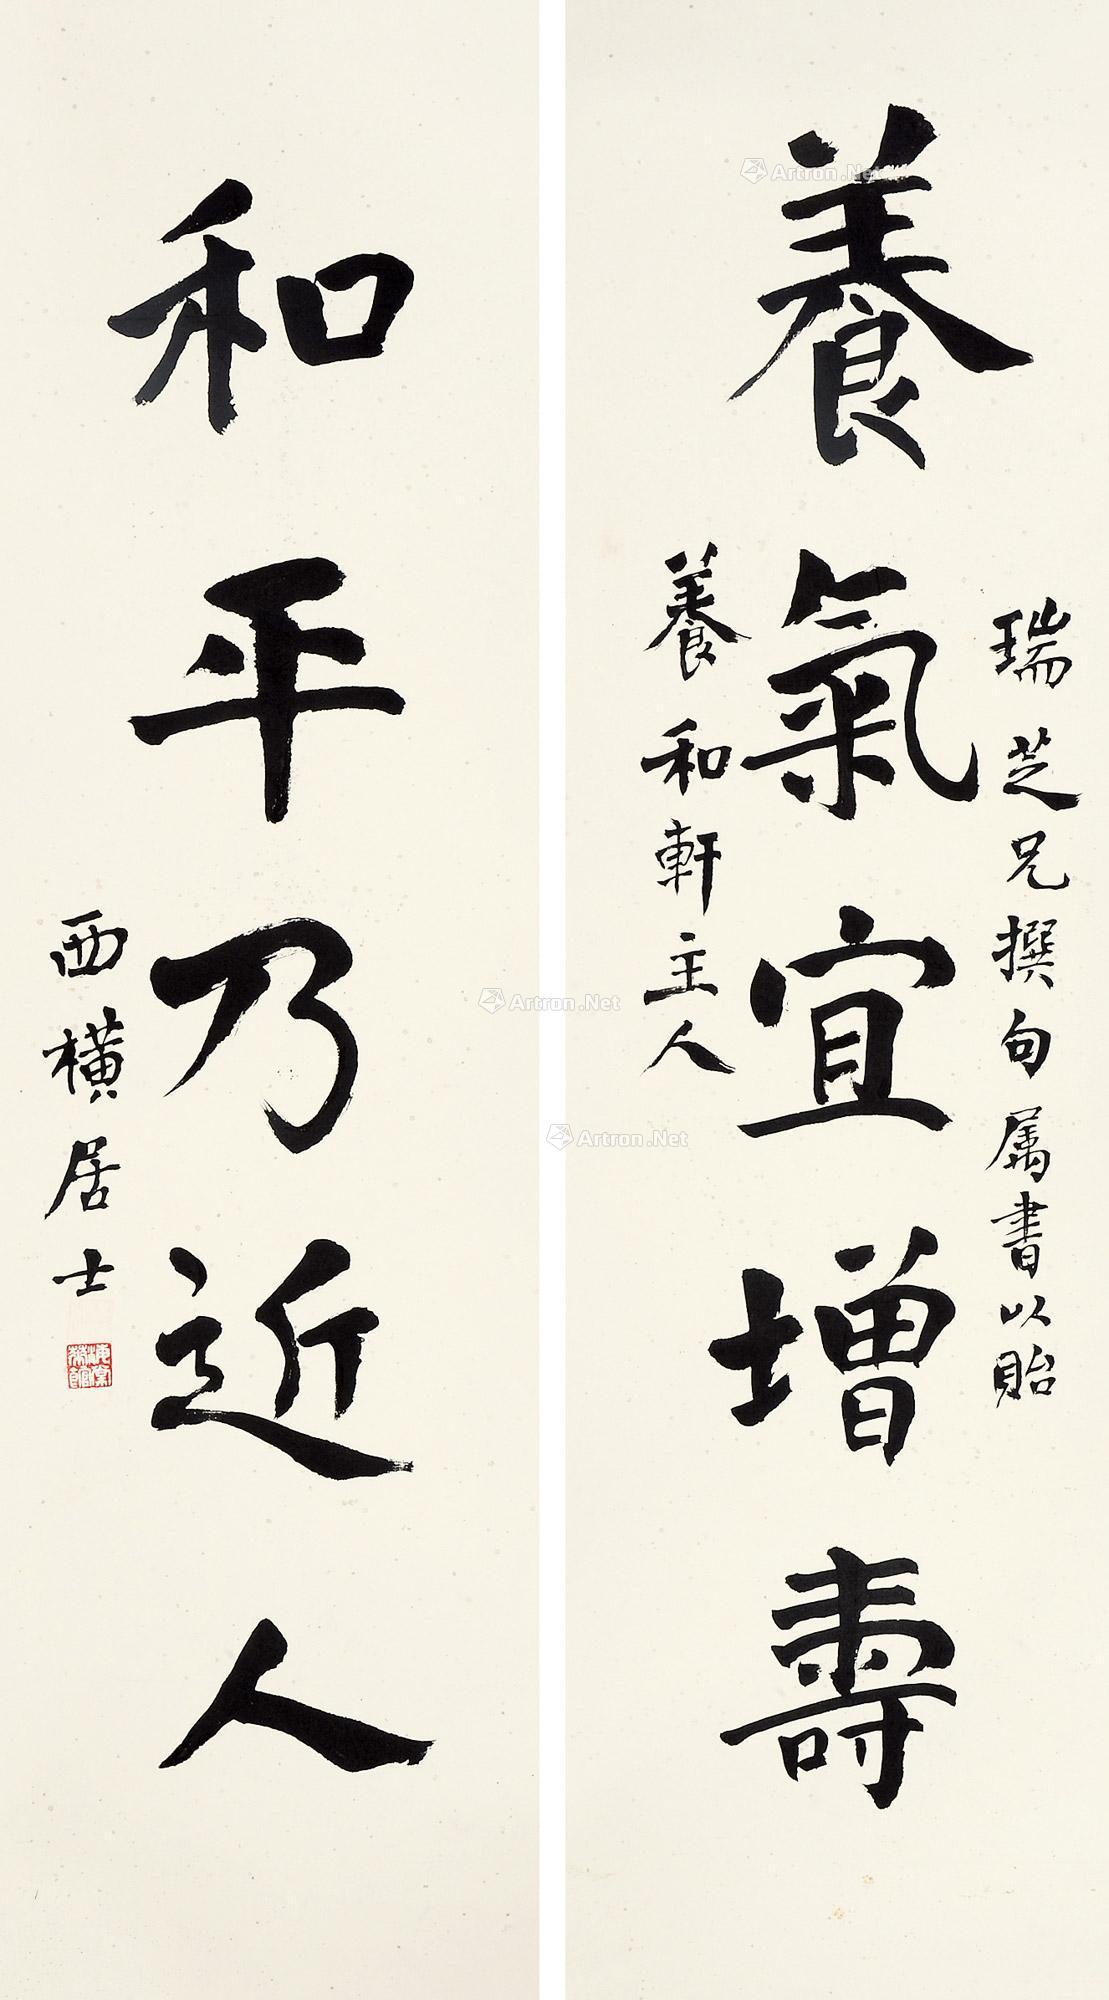 養氣宜增壽
瑞芝兄撰句属書以貽
養和軒主人
和平乃近人
西橫居士
Artron.Net
Artron.Net
Artron.Net
Artron.Net